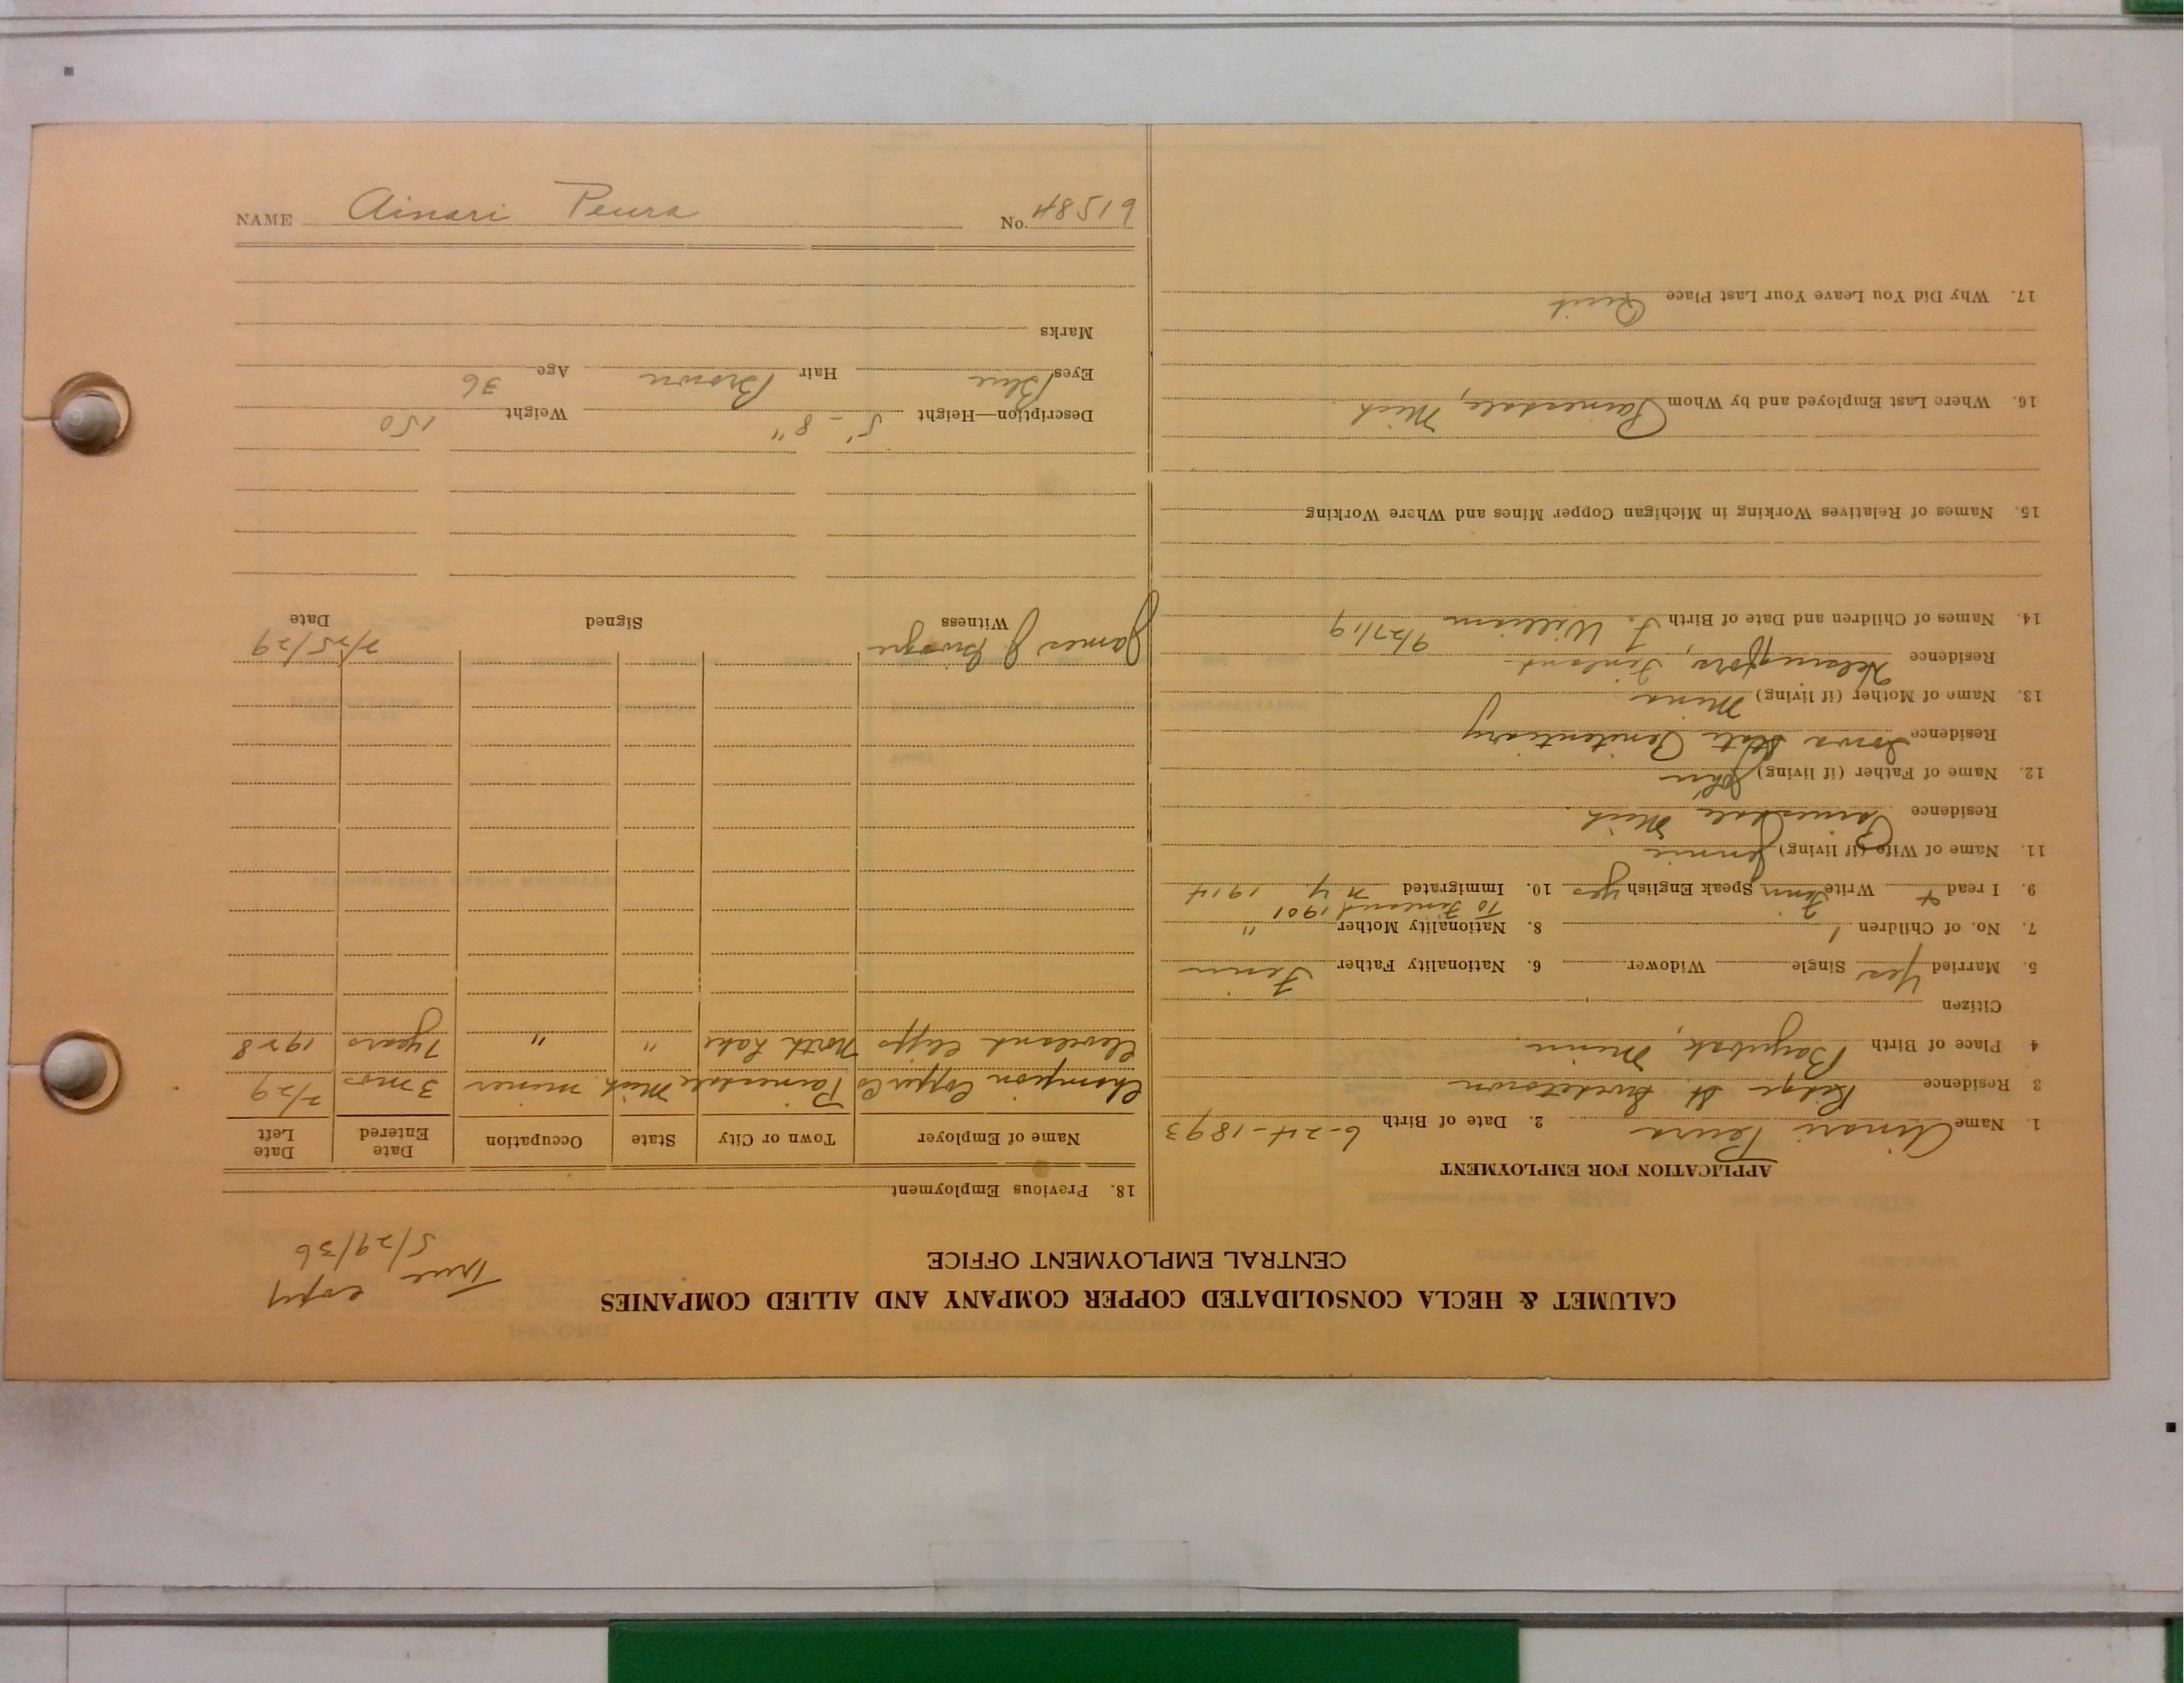 CALUMET & HECLA CONSOLIDATED COPPER COMPANY AND ALLIED COMPANIES
CENTRAL EMPLOYMENT OFFICE
True copy
5/29/36
APPLICATION FOR EMPLOYMENT
1. Name Ainari Peura 2. Date of Birth 6-24-1893
3 Residence Ridge St. Swedetown
4 Place of Birth Minn
Citizen
5. Married Yes Single Widower 6. Nationality Father Finn
7. No. of Children 1 8. Nationality Mother "
To Finland 1901
9. I read + Write Finn Speak English yes 10. Immigrated N Y 1914
11. Name of Wife (if living) Jennie
Residence Painesdale Mich
12. Name of Father (if living) John
Residence Iowa State Penitentiary
13. Name of Mother (if living) Mina
Residence Helsingfors, Finland
14. Names of Children and Date of Birth J. William 9/27/19
15. Names of Relatives Working in Michigan Copper Mines and Where Working
16. Where Last Employed and by Whom Painesdale, Mich
17. Why Did You Leave Your Last Place Quit
18. Previous Employment
Name of Employer Town or City State Occupation Date Entered Date Left
Champion Copper Co Painesdale Mich miner 3 mos 7/29
Cleveland Cliffs North Lake " " 7 years 1928
James J. 7/25/29
Witness Signed Date
Description—Height 5'-8" Weight 150
Eyes Blue Hair Brown Age 36
Marks
NAME Ainari Peura No. 48519